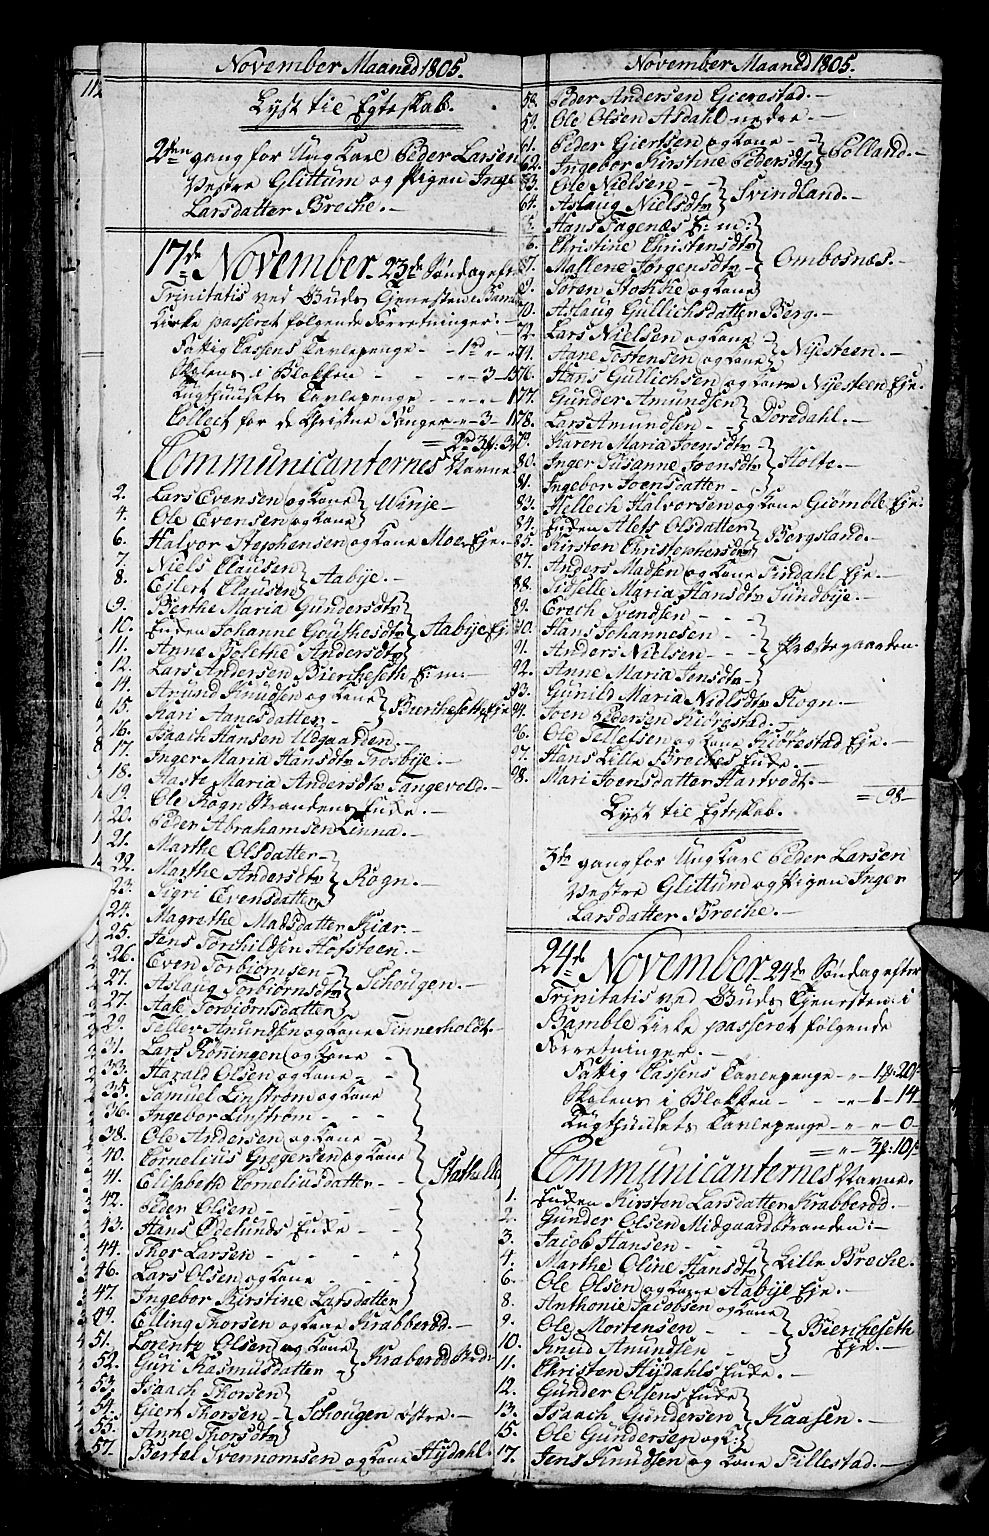 November Maaned 1805.
112
Lyst til Egteskab.
2den gang for Ung Karl Peder Larsen
Vestre Glittum og Pigen Inger
Larsdatter Breche.
17de November. 23de Søndag efter
Trinitatis ved Guds Tjenesten i Bamble
Kirke passeret følgende Forretninger.
Fattig Cassens Tavlepenge
Skolens i Blokken
Tugthuusets Tavlepenge
Collect for de Christne Fanger
Communicanternes Navne
2. Lars Evensen og Kone
4. Ole Evensen og Kone } Winje
6. Halvor Stephensen og Kone Moe Eje.
7. Niels Clausen
8. Ejlert Clausen } Aabije.
9. Berthe Maria Gundersdtr
10. Enken Johanne Gouthesdtr } Aabije Eje
11. Anne Dorethe Andersdtr
12. Lars Andersen Bierkeseth E: m:
14. Amund Knudsen og Kone
15. Kari Aanesdatter } Bierkeseth Eje
16. Isaach Hansen Udgaarden.
17. Inger Maria Hansdtr Trosbije.
18. Aaste Maria Andersdtr Tangevold.
19. Ole Rogn Strandens Enke.
20. Peder Abrahamsen Linna.
21. Marthe Olsdatter
22. Marthe Andersdtr } Rogn.
23. Sigri Evensdatter
24. Magrethe Madsdatter Kjær.
25. Jens Torchildsen Hafsteen.
26. Even Torbiørnsen
27. Aslaug Torbiørnsdtr } Schougen.
27. Aase Torbiørnsdatter
29. Tellef Amundsen og Kone Tinnerholdt.
31. Lars Rønningen og Kone
33. Harald Olsen og Kone
35. Samuel Linstrøm og Kone
36. Ingebor Linstrøm
38. Ole Andersen og Kone
40. Cornelius Gregersen og Kone
41. Elisabeth Corneliusdatter } Stathelle
42. Peder Olsen
43. Hans Ødelunds Enke
44. Thor Larsen
46. Lars Olsen og Kone
47. Ingebor Kirstine Larsdatter
49. Elling Thorsen og Kone Krabberød.
51. Lorentz Olsen og Kone
52. Guri Rasmusdatter } Krabberød
53. Isaach Thorsen
54. Giert Thorsen } Schougen Østre.
55. Anne Thorsdtr
57. Bertel Svennomsen og Kone Hydahl
November Maaned 1805.
58. Peder Andersen Gierestad.
59. Ole Olsen Asdahl nedre.
61. Peder Giertsen og Kone
62. Ingebor Kirstine Pedersdtr } Lolland.
63. Ole Nielsen
64. Aslaug Nielsdtr } Svindland.
Hans Fagenæs E: m:
6. Christine Christensdtr
67. Mallene Jørgensdtr } Ombosnes.
69. Søren Stokke og Kone
70. Aslaug Gullichsdatter Berg.
72. Lars Nielsen og Kone
74. Hane Tostensen og Kone } Nyesteen.
76. Hans Gullichsen og Kone Nyesteen Eje.
77. Gunder Amundsen
78. Lars Amundsen } Dordahl.
79. Karen Maria Joensdtr
80. Inger Susanne Joensdtr } Stolte.
81. Ingebor Joensdatter
83. Hellech Halvorsen og Kone Giømble Eje.
84. Enken Alets Olsdatter
85. Kirsten Christophersdtr } Bergsland.
87. Anders Madsen og Kone Findahl Eje.
88. Sidselle Maria Hansdtr Sundbije.
89. Erech Svendsen
90. Hans Johannesen
91. Anders Nielsen } Præstegaarden
92. Anne Maria Jensdtr
93. Gunild Maria Nielsdtr Rogn.
94. Joen Pedersen Kiørestad.
96. Ole Tellefsen og Kone Kiørestad Eje.
97. Hans Lille Breches Enke.
98. Mari Joensdatter Hartvedt.
= 98
Lyst til Egteskab.
3de gang for Ung Karl Peder Larsen
Vestre Glittum og Pigen Inger
Larsdatter Breche.
24de November. 24de Søndag efter
Trinitatis ved Guds Tjenesten i
Bamble Kirke passeret følgende
Forretninger.
Fattig Cassens Tavlepenge
Skolens i Blokken 1 - 14
Tugthuusets Tavlepenge 0
Communicanternes Navne.
1. Enken Kirsten Larsdatter Krabberød.
2. Gunder Olsen Midgaardstranden.
3. Jacob Hansen
4. Marthe Oline Hansdtr } Lille Breche.
6. Ole Olsen og Kone Aabije Eje.
8. Anthonie Jacobsen og Kone
9. Ole Mortensen } Bierkeseth
10. Knud Amundsen Eje.
11. Christen Hydahls Enke.
12. Gunder Olsens Enke
13. Isaach Gundersen } Kaasen.
15. Ole Gundersen og K:
17. Jens Knudsen og Kone Fillestad.